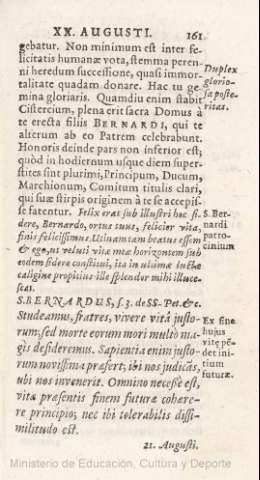 XX. AUGUSTI. 161
gebatur. Non minimum est inter fe-
licitatis humanæ vota, stemma peren-
ni heredum successione, quasi immor-
talitate quadam donare. Hac tu ge-
mina gloriaris. Quamdiu enim stabit
Cistercium, plena erit sacra Domus à
te erecta filiis BERNARDI, qui te
alterum ab eo Patrem celebrabunt.
Honoris deinde pars non inferior est;
quòd in hodiernum usque diem super-
stites sint plurimi, Principum, Ducum,
Marchionum, Comitum titulis clari,
qui suæ stirpis originem à te se accepis-
se fatentur. Felix eras sub illustri hoc si-
dere, Bernardo, ortus sanè, felicior vita,
finis felicissimus. Utinam tam beatus essem
& ego, ut veluti vitæ meæ horizontem sub
eodem sidere constitui, ita in ultimæ
caligine propitius ille splendor mihi illuce-
scat.
Duplex
glorio-
sa poste-
ritas.
S. Ber-
nardi
patro-
cinium
S. BERNARDUS, s. 3. de SS. Pet. & c.
Studeamus, fratres, vivere vitâ justo-
rum: sed morte eorum mori multò ma-
gis desideremus. Sapientia enim justo-
rum novissima præfert; ibi nos judicās,
ubi nos invenerit. Omnino necesse est,
vitæ præsentis finem futuræ cohære-
re principio; nec ibi tolerabilis dissi-
militudo est.
Ex fine
hujus
vitæ pē-
det ini-
tium
futuræ.
21. Augusti.
Ministerio de Educación, Cultura y Deporte